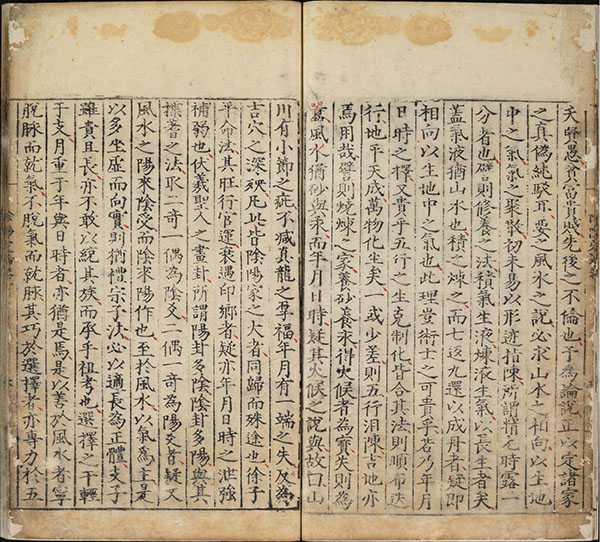 愚富貴賤先後之不倫也予為論說正以定諸家
之真偽純駁耳要之風水之說必求山水之相向以生地
中之氣氣之聚散初未易以形迹指陳所謂時露一
分者也譬則修養之法積氣生液煉液生氣以長生者矣
蓋氣液猶山水也積之煉之而七返九還以成丹者疑即
相向以生地中之氣也此理豈術士之可貴乎若乃年月
日時之擇又貴乎五行之生克制化皆合其法則順布迭
行地平天成萬物化生矣一或少差則五行汨陳吉地亦
焉用哉譬則燒煉之家養砂養汞得火候者為寶失則為
風水猶砂與汞而年月日時疑其火候之說與故曰山
川有小節之疵不減真龍之尊福年月有一端之失反為
吉穴之深殃凡此皆陰陽家之大者同歸而殊途也徐子
平命法其旺行官運衰遇印鄉者疑亦年月日時之泄強
補弱也伏羲聖人之畫卦所謂陽卦多陰陰卦多陽與其
揲蓍之法取二奇一偶為陰爻二偶一奇為陽爻者疑又
風水之陽來陰受而陰來陽作也至於風水以氣為主是
以多坐虛而向實則猶宗子法必以適長為正體支子
雖貴且長亦不敢以絕其族而承乎祖考也選擇之干輕
于支月重于年與日時者亦猶是焉是以善於風水者寧
脫脉而就氣不脫氣而就脉其巧於選擇者亦專力於五